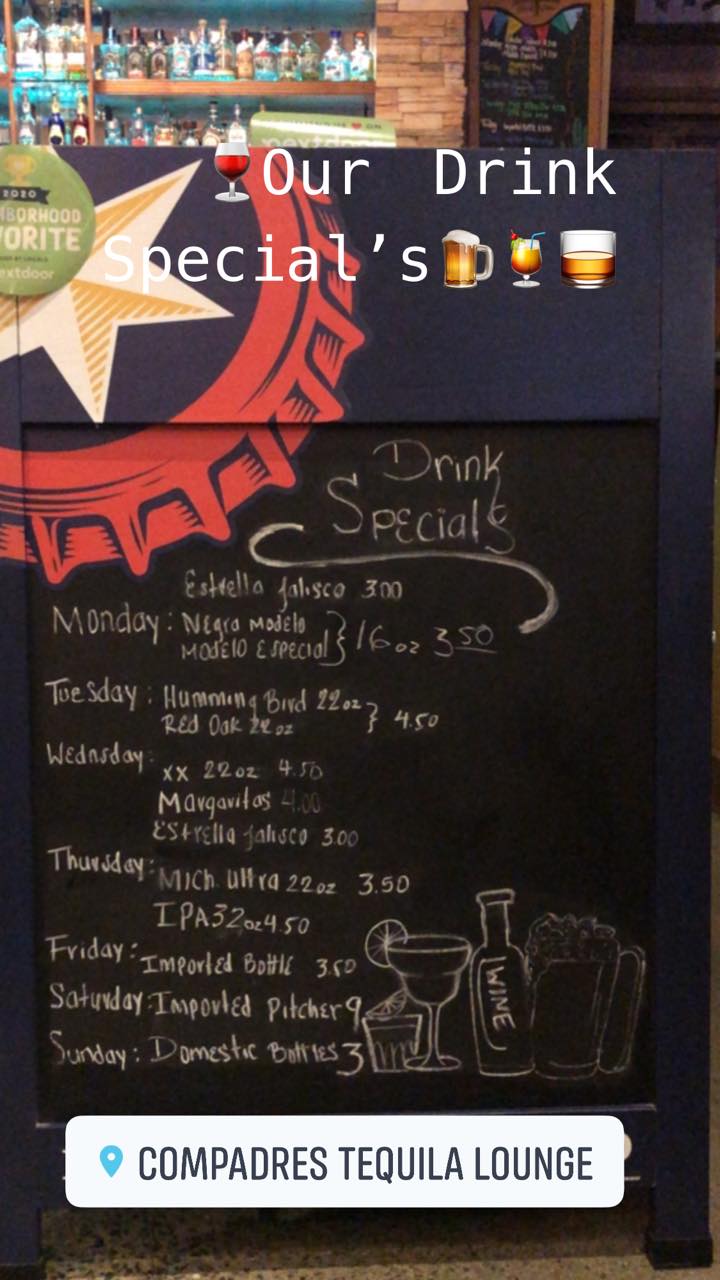 2020
FAVORITE
nextdoor
🍷Our Drink
Special’s🍺🍹🥃
Drink
Specials
Estrella Jalisco 3.00
Monday: Negra Modelo
Modelo Especial } 16oz 3.50
Tuesday: Humming Bird 22oz
Red Oak 22oz } 4.50
Wednsday:
xx 22oz 4.50
Margaritas 4.00
Estrella Jalisco 3.00
Thursday:
Mich. Ultra 22oz 3.50
IPA 32oz 4.50
Friday: Imported Bottle 3.50
Saturday: Imported Pitcher 9
Sunday: Domestic Bottles 3
WINE
COMPADRES TEQUILA LOUNGE